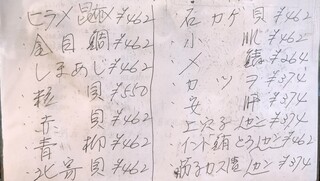 ・ヒラメ昆〆 ¥462
・金目鯛 ¥462
・しまあじ ¥462
・粒貝 ¥550
・赤貝 ¥462
・青柳 ¥462
・北寄貝 ¥462
・石カゲ貝 ¥462
・小肌 ¥462
・〆鯖 ¥264
・カツヲ ¥374
・安 ¥374
・上穴子 ¥374
・インド鮪とろ ¥462
¥374